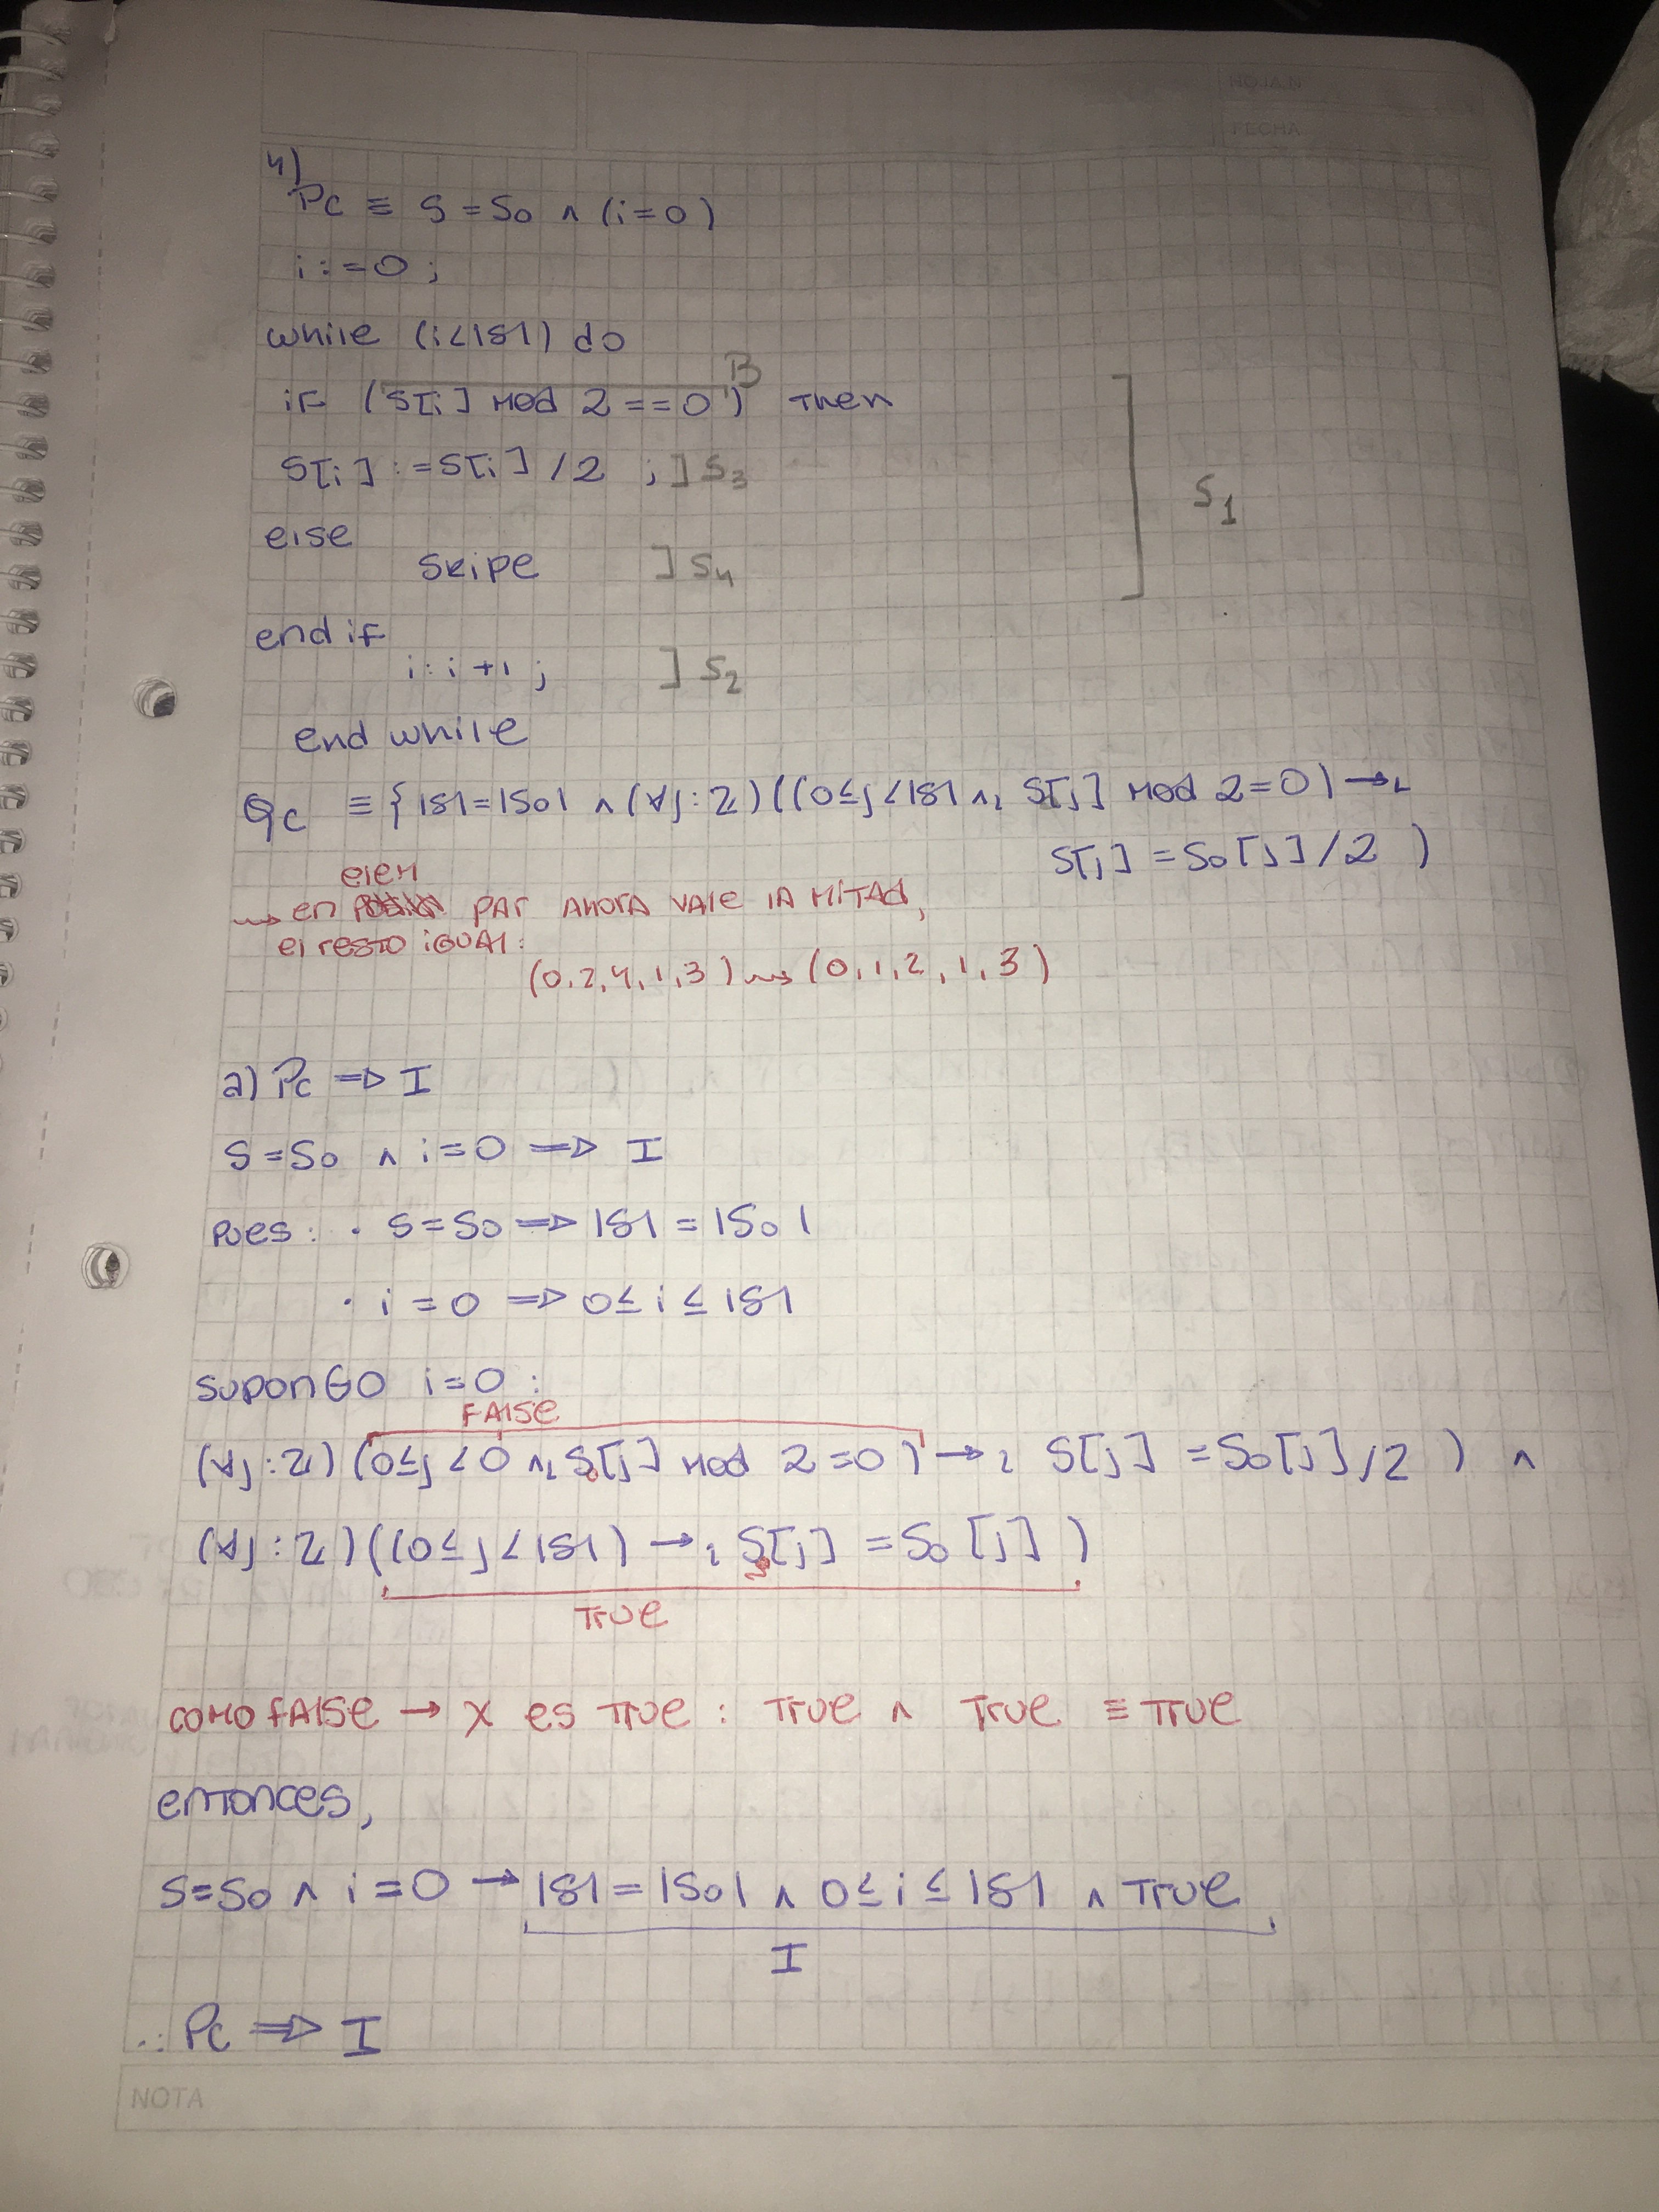 HOJA N
FECHA
4)
Pc ≡ S = So ∧ (i=0)
i:=0;
while (i<|S|) do
B
if (S[i] mod 2 == 0) then
S[i] := S[i] / 2 ; ] S3
else
S1
skipe ] S4
endif
i: i +1 ; ] S2
end while
Qc ≡ { |S|=|So| ∧ (∀j:ℤ)((0≤j<|S| ∧L S[j] mod 2=0) →L
S[j] = So[j]/2 )
elem
⇝ en par ahora vale la mitad,
el resto igual:
(0,2,4,1,3) ⇝ (0,1,2,1,3)
a) Pc ⇒ I
S=So ∧ i=0 ⇒ I
pues: · S=So ⇒ |S| = |So|
· i=0 ⇒ 0≤ i ≤ |S|
supongo i=0 :
False
(∀j:ℤ) (0≤j<0 ∧L S[j] mod 2=0) →L S[j] = So[j]/2 ) ∧
(∀j:ℤ)((0≤j<|S|) →L S[j] = So[j] )
True
como false → X es true : true ∧ true ≡ true
entonces,
S=So ∧ i=0 → |S|=|So| ∧ 0≤i≤|S| ∧ true
I
∴ Pc ⇒ I
NOTA